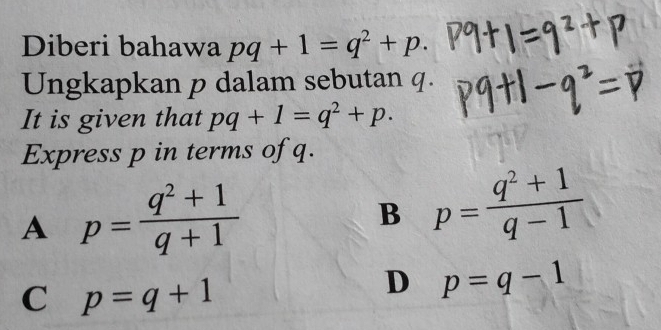 Diberi bahawa pq + 1 = q² + p. pq+1=q²+p
Ungkapkan p dalam sebutan q. pq+1-q²=p
It is given that pq + 1 = q² + p.
Express p in terms of q.
A p = (q² + 1)/(q + 1) B p = (q² + 1)/(q − 1)
C p = q + 1 D p = q − 1